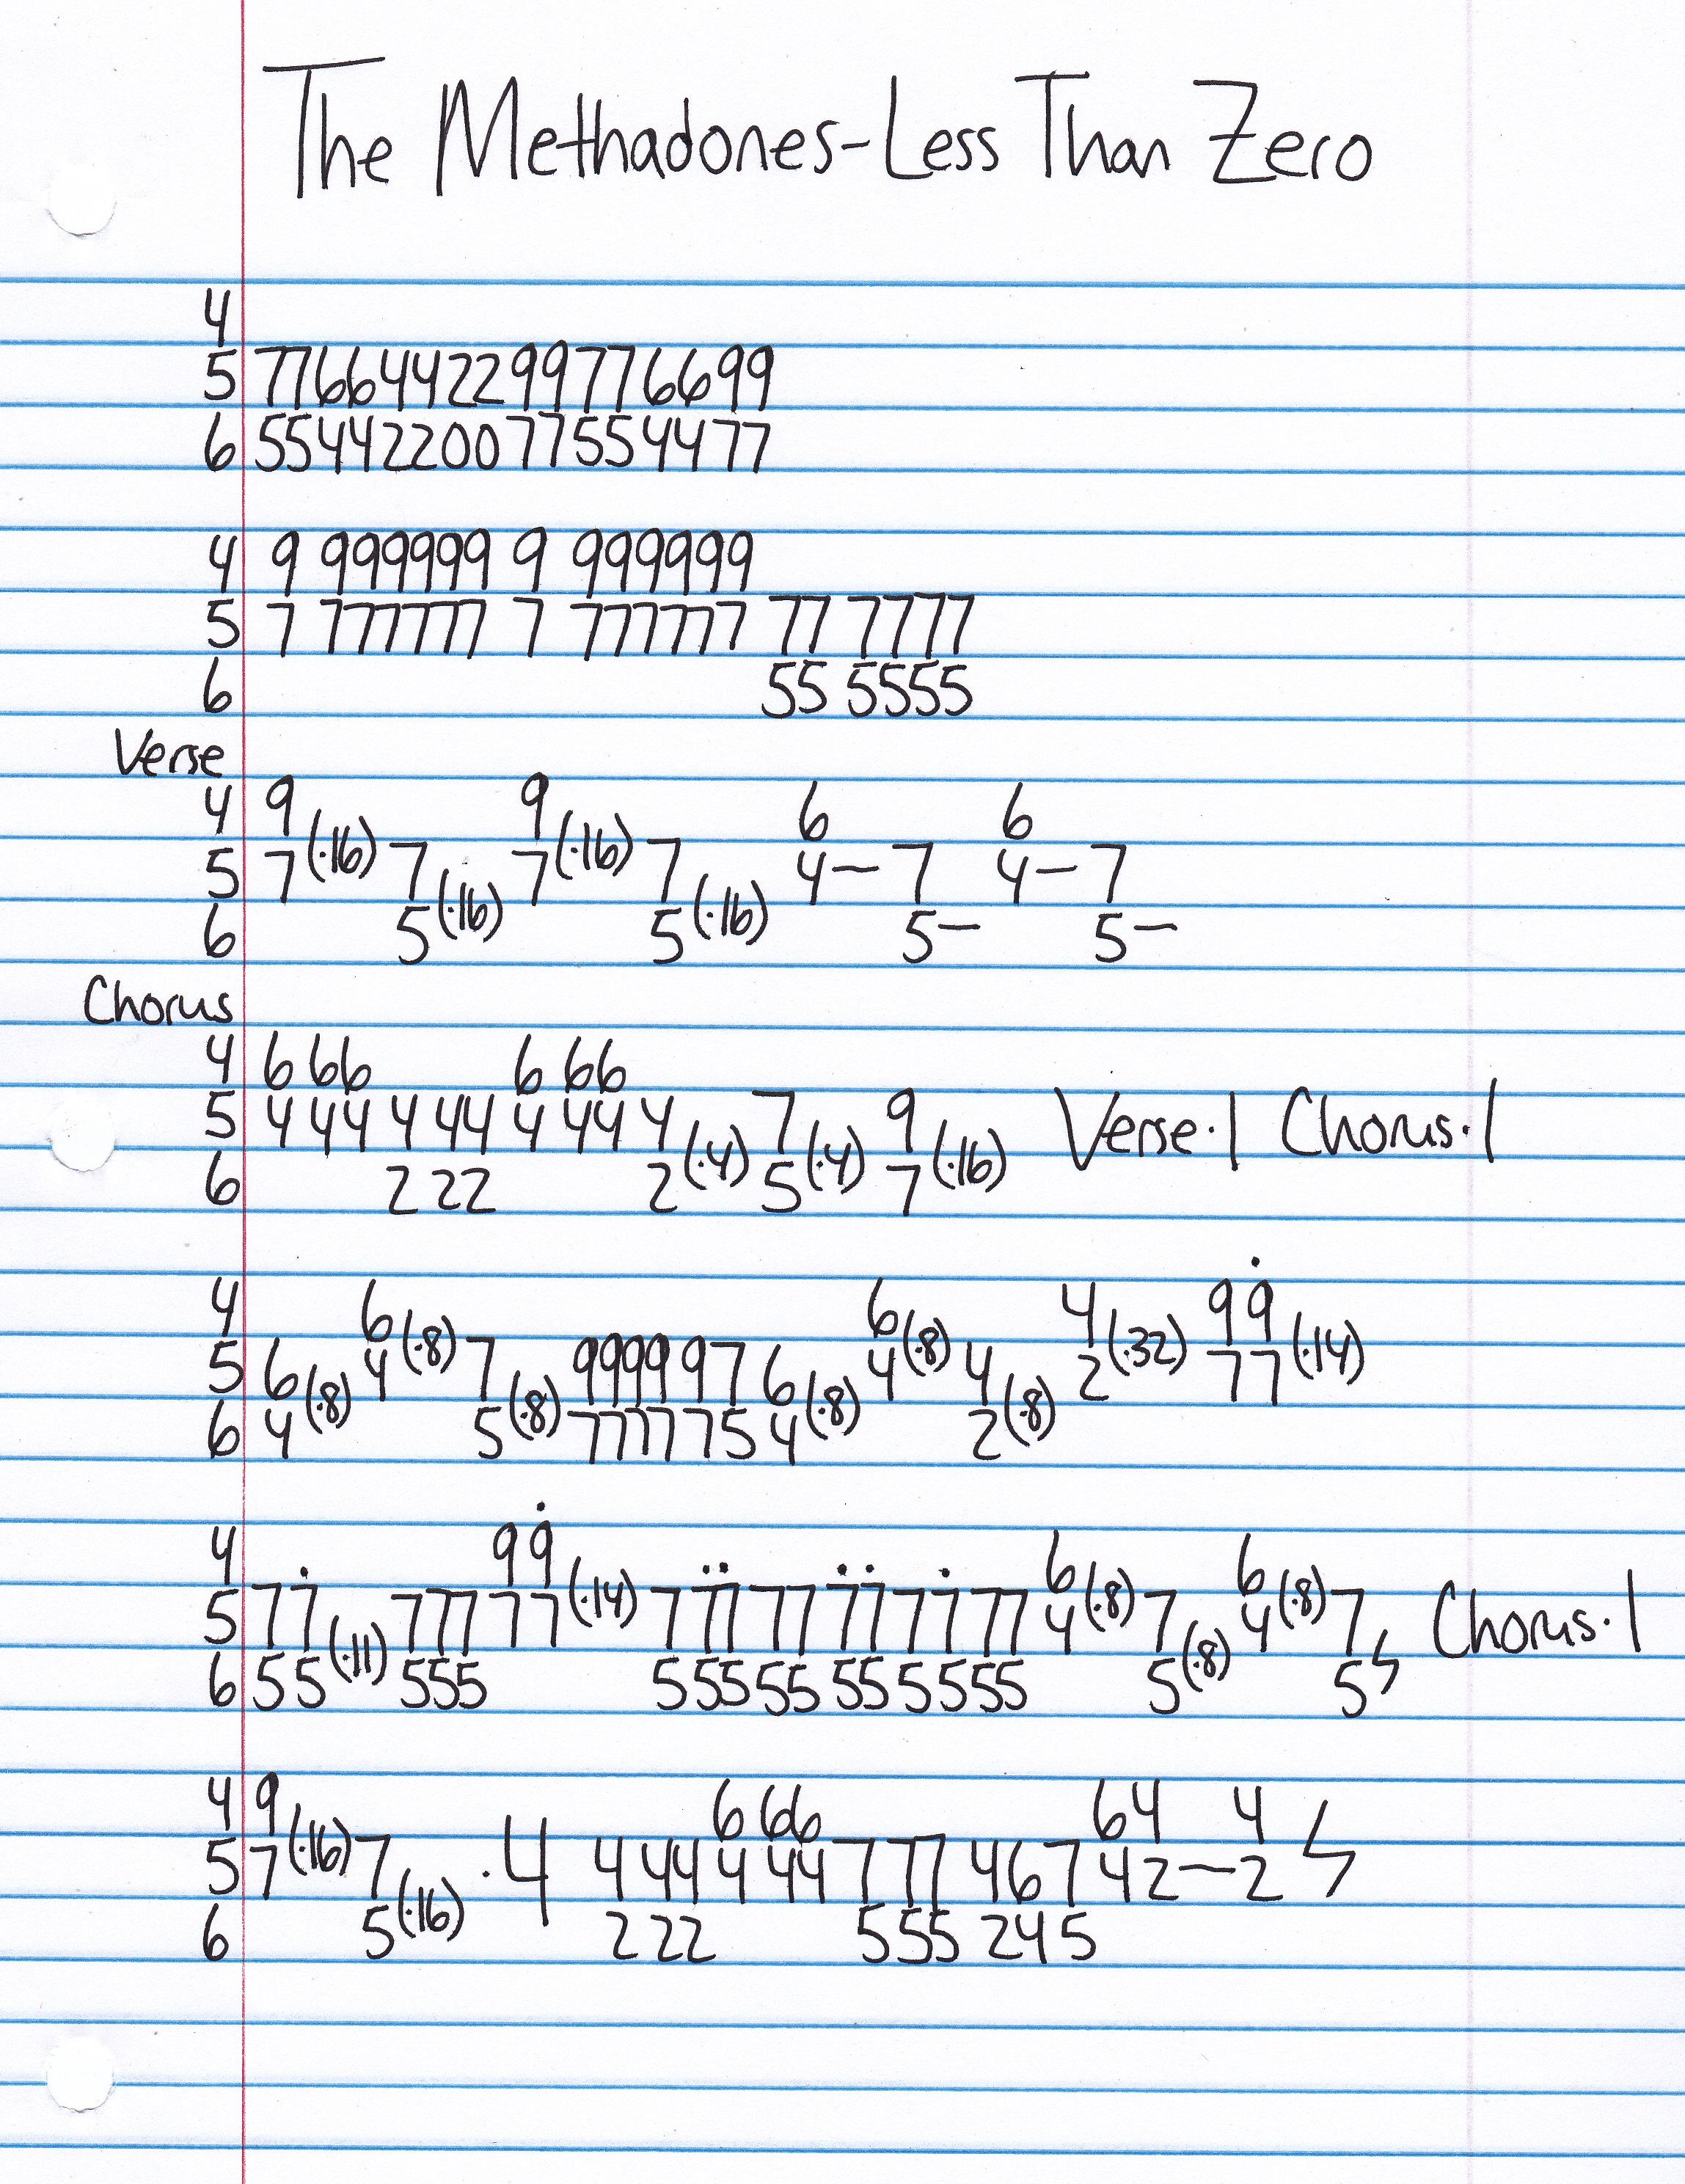 The Methadones-Less Than Zero
4
5 7766442299776699
6 5544220077554477
4 9 999999 9 999999
5 7 777777 7 777777 77 7777
6 55 5555
Verse
4 9 9 6 6
5 7(·16) 7 7(·16) 7 4— 7 4— 7
6 5(·16) 5(·16) 5— 5—
Chorus
4 6 66 6 66
5 4 44 4 44 4 44 4 7 9 Verse·1 Chorus·1
6 2 22 2(·4) 5(·4) 7(·16)
4 6 6 4 99̇
5 6 4(·8) 7 9999 97 6 4(·8) 4 2(·32) 77(·14)
6 4(·8) 5(·8) 7777 75 4(·8) 2(·8)
4 99̇ 6 6
5 77̇ 777 77(·14) 77̇7̇ 77 7̇7̇ 77̇ 77 4(·8) 7 4(·8) 7 Chorus·1
6 55(·11) 555 555 55 55 5 555 5(·8) 5
4 9 6 66 64 4
5 7(·16) 7 ·4 4 44 4 44 7 77 467 42—2
6 5(·16) 2 22 555 245